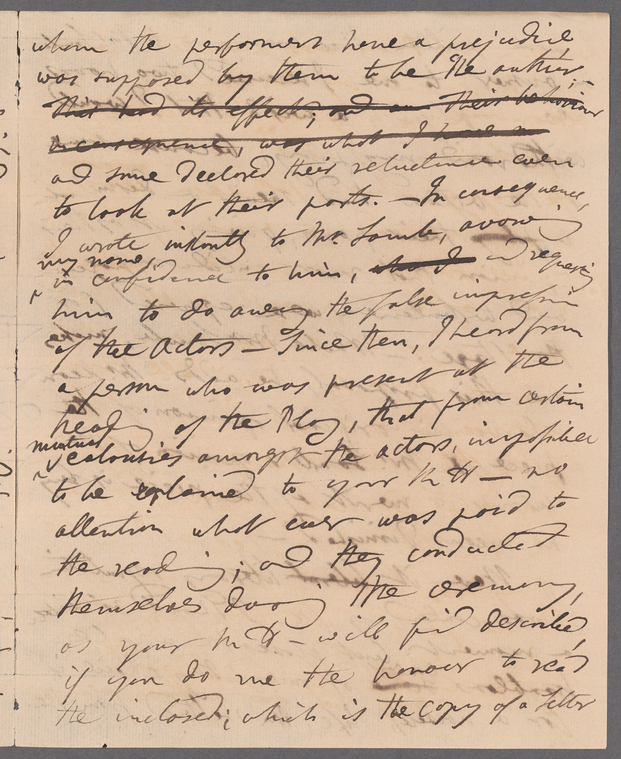 whom the performers have a prejudice
was supposed by them to be the author;-
This had its effect; and on their behaviour
in consequence, was what I have no
ad some declared their reluctance even
to look at their parts. - In consequence,
I wrote instantly to Mr. Lamb, avowing
my name,
in confidence to him, who I and requesting
him to do away the false impression
of the Actors - Since then, I heard from
a person who was present at the
reading of the Play, that from certain
mutual
jealousies amongst the actors, impossible
to be explained to your R H - no
attention what ever was paid to
the reading; and they conducted
themselves during the ceremony,
as your R H - will find described,
if you do me the honour to read
the inclosed; which is the copy of a letter